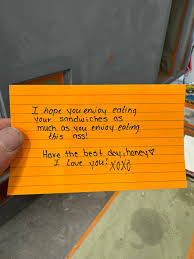 I hope you enjoy eating
your sandwiches as
much as you enjoy eating
this ass!
Have the best day, honey♡
I love you! XOXO